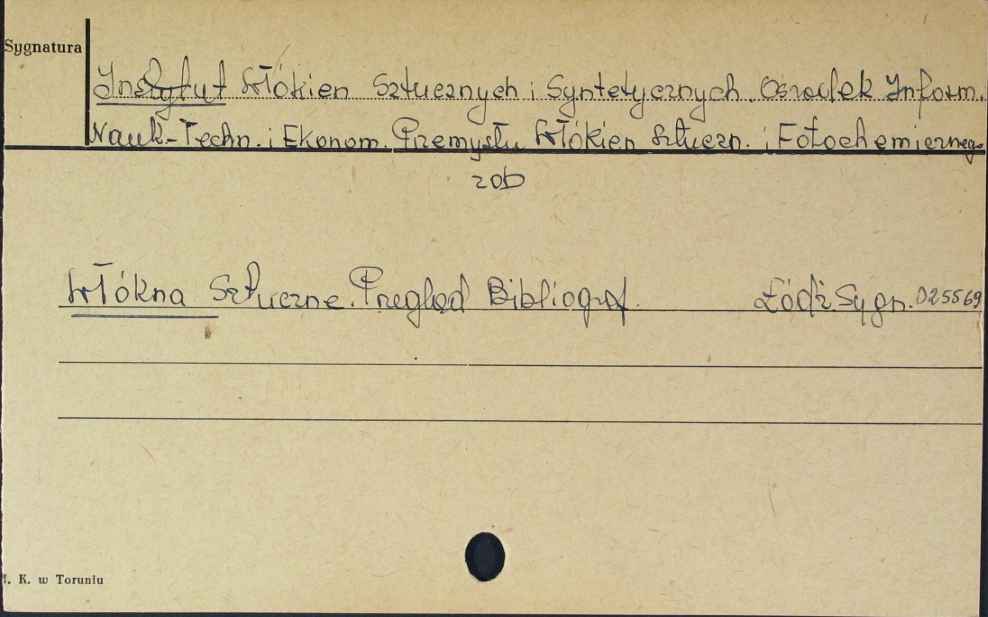 Sygnatura
Instytut Włókien Sztucznych i Syntetycznych. Ośrodek Inform.
Nauk-Techn. i Ekonom. Przemysłu Włókien Sztuczn. i Fotochemiczneg.
zob
Włókna Sztuczne. Przegląd Bibliograf. Łódź. Sygn. 025569
K. w Toruniu